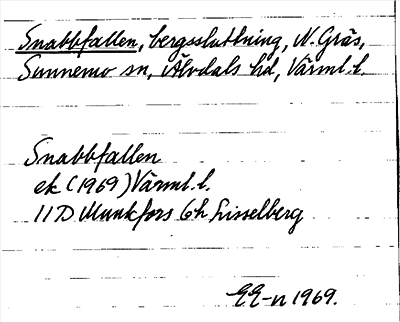 Snabbfallen, bergssluttning, N. Gräs,
Sunnemo sn, Älvdals hd, Värml. l.
Snabbfallen
ek (1969) Värml. l.
11D Munkfors 6h Lisselberg
EE-n 1969.